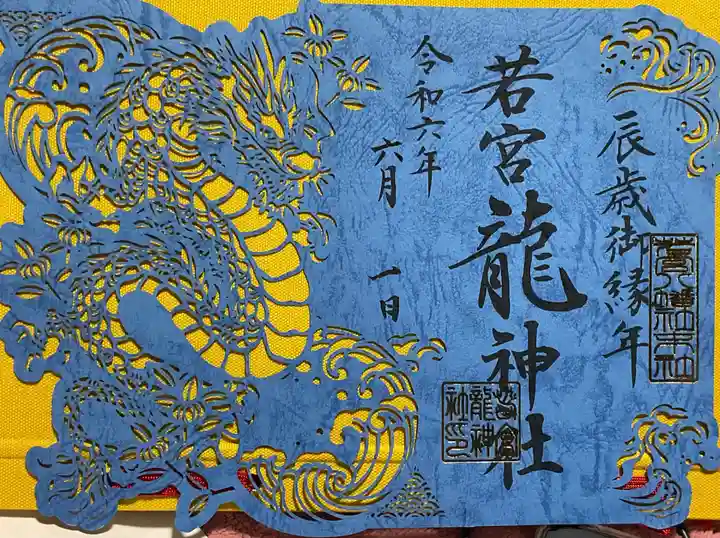 辰歳御縁年
若宮龍神社
令和六年
六月 一日
若宮龍神社印